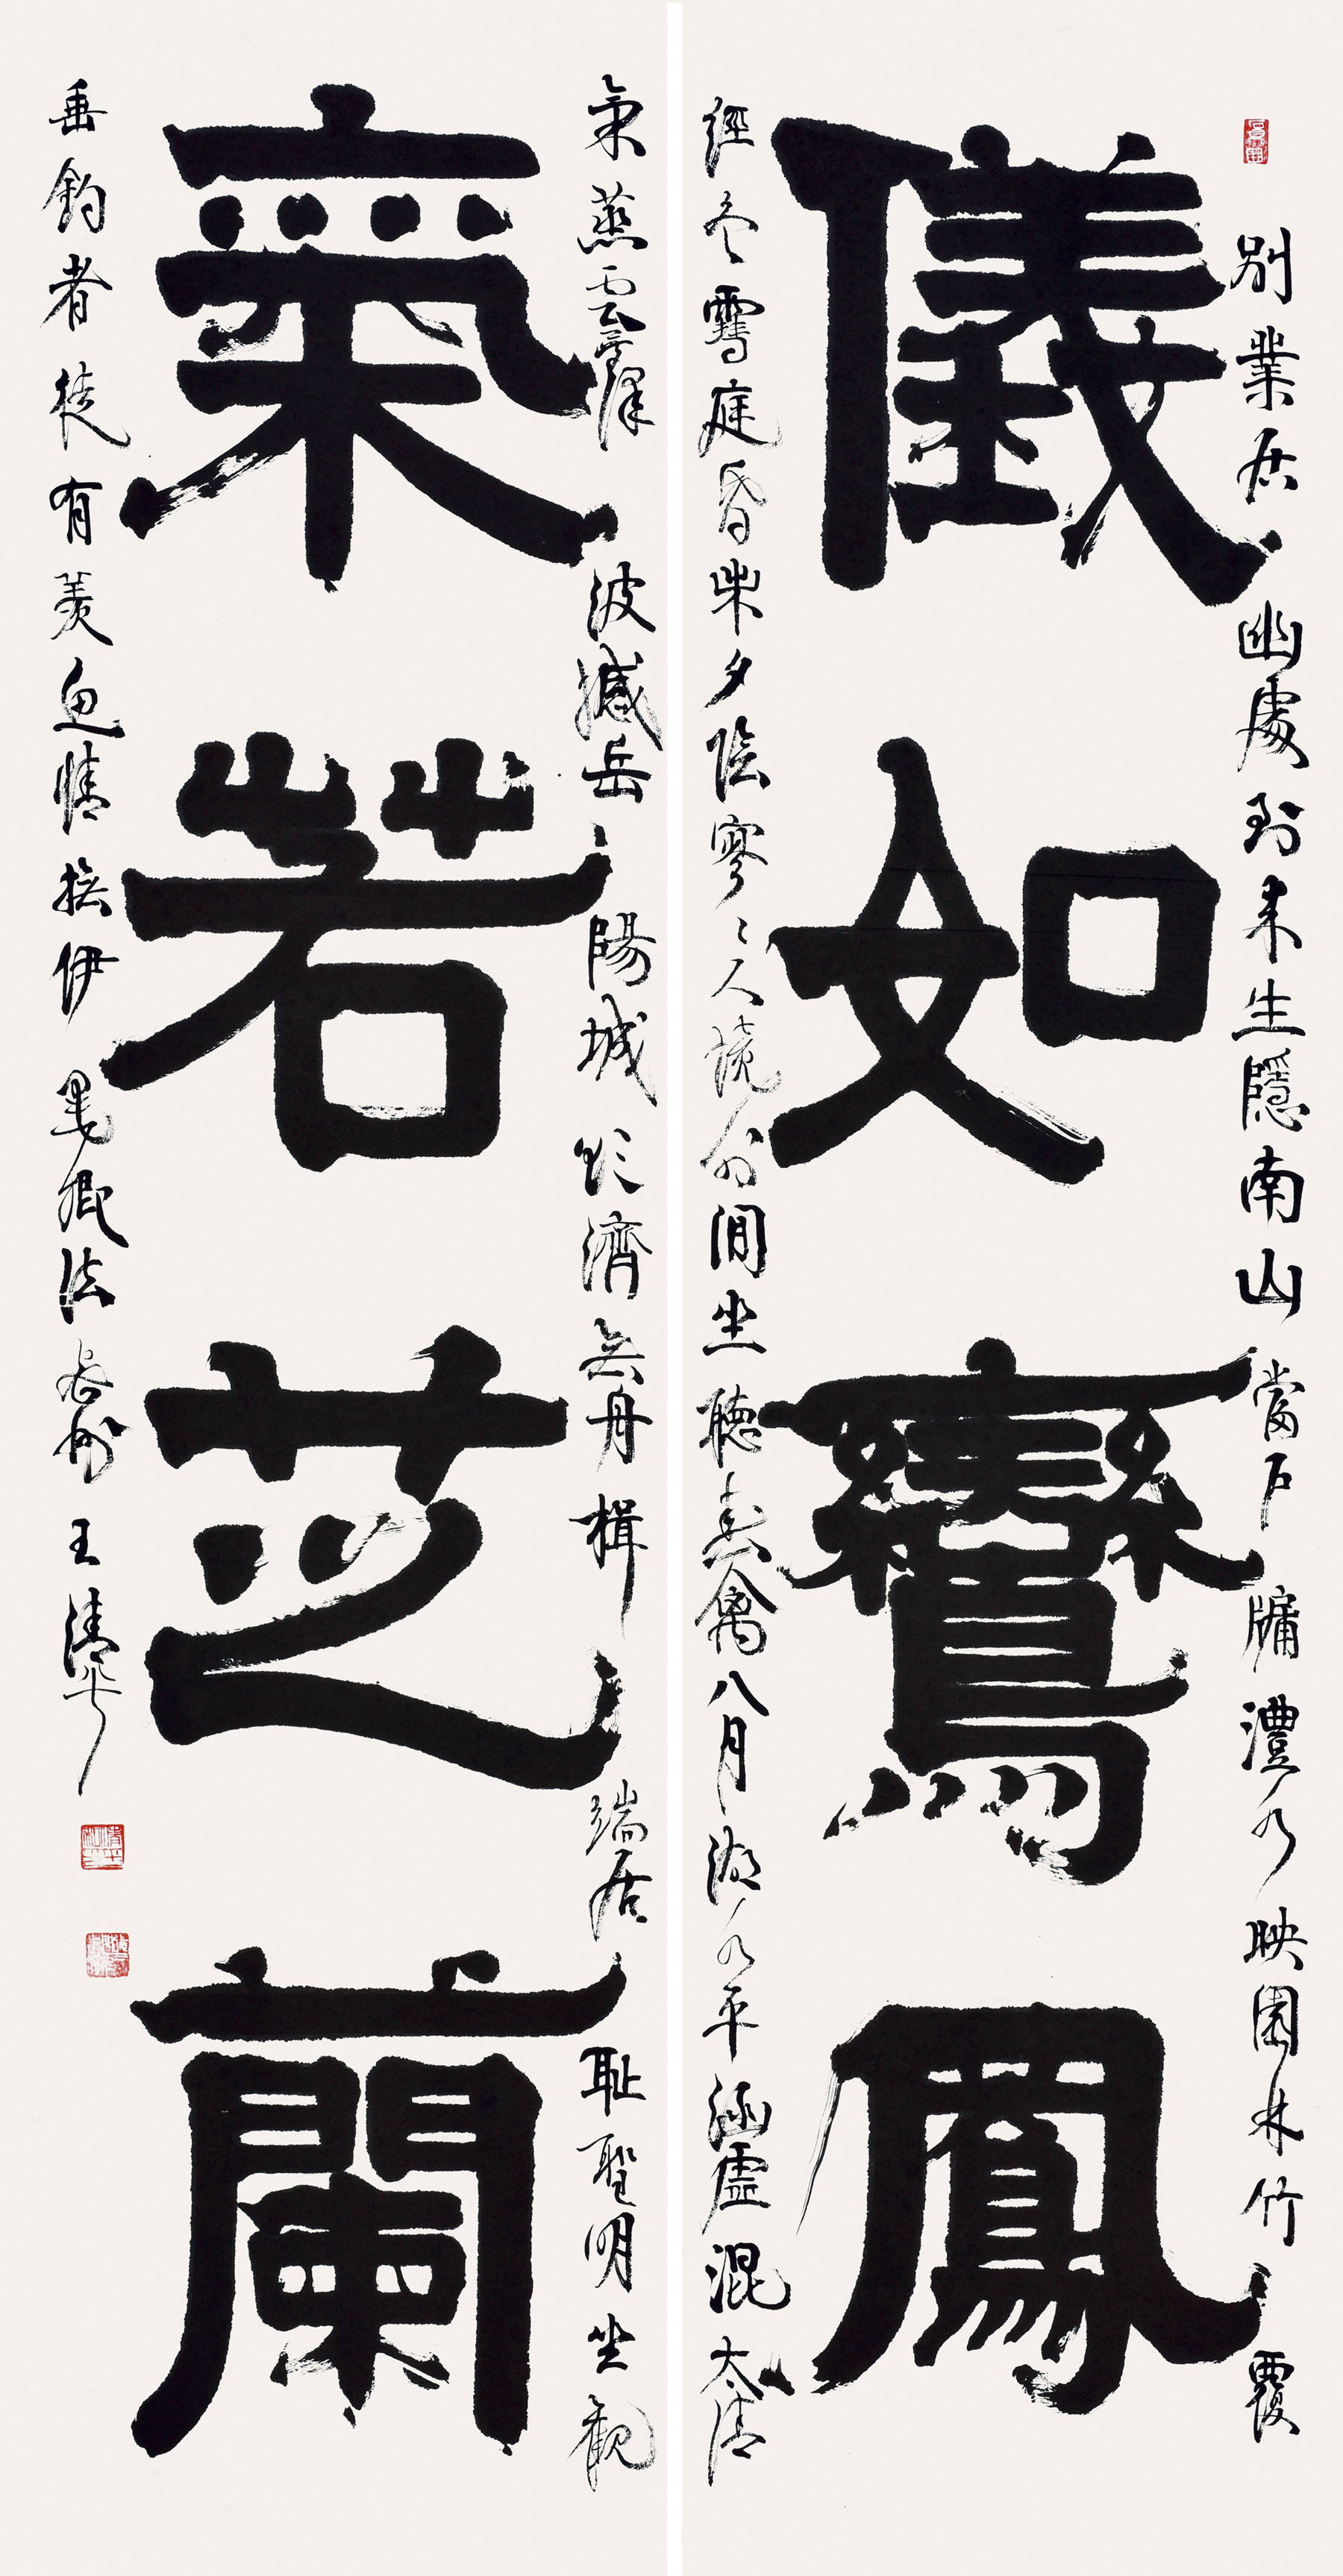 別業居幽處到来生隱南山當戶牖澧水映園林竹覆
儀如鸞鳳
經冬雪庭昏未夕陰寥々人境外閒坐聽春禽八月湖水平涵虛混太清
氣蒸雲夢澤波撼岳陽城欲濟無舟楫端居恥聖明坐觀
氣若芝蘭
垂釣者徒有羨魚情撫伊墨卿法王清平